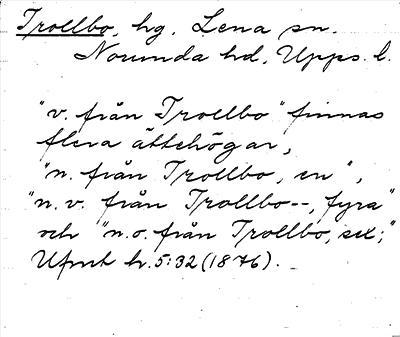 Trollbo, hg, Lena sn.
Norunda hd, Upps. l.
"v. från Trollbo" finnas
flera ättehögar,
"n. från Trollbo, en",
"n.v. från Trollbo--, fyra"
och "n.o. från Trollbo, sex;"
Ufmt h.5:32(1876).